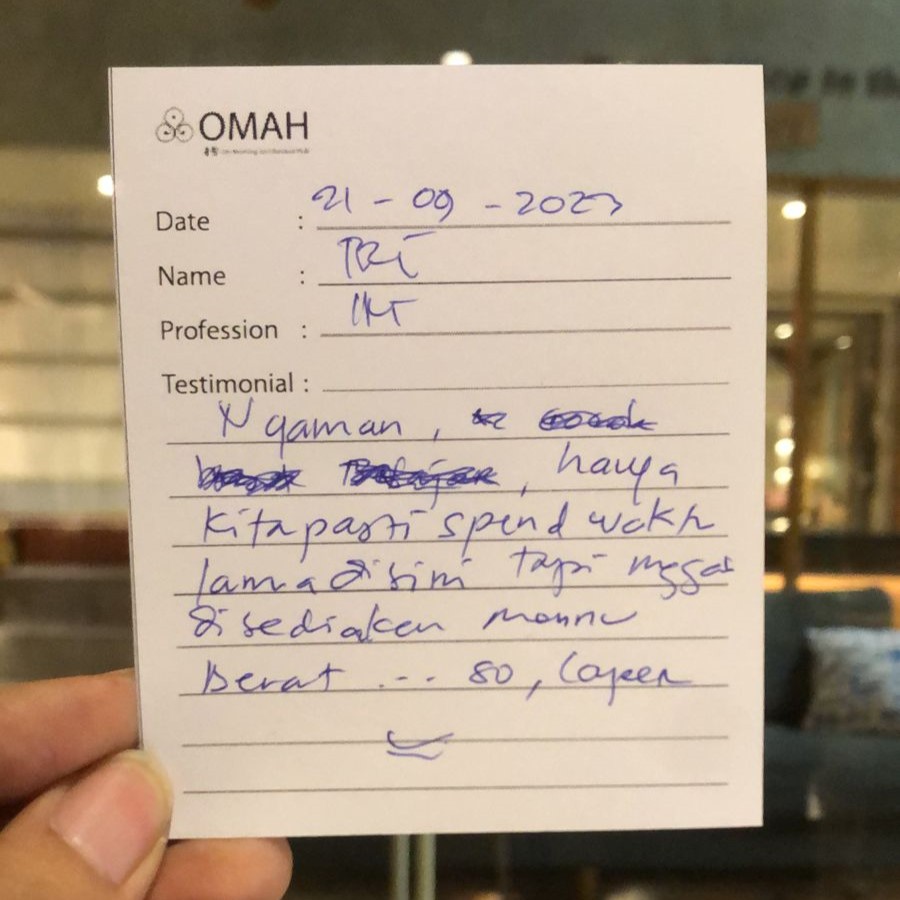 OMAH
Date : 21 - 09 - 2023
Name : TRI
Profession : IRT
Testimonial :
Nyaman,
, hanya
Kita pasti spend waktu
lama disini tapi nggak
disediakan menu
Berat ... so, laper